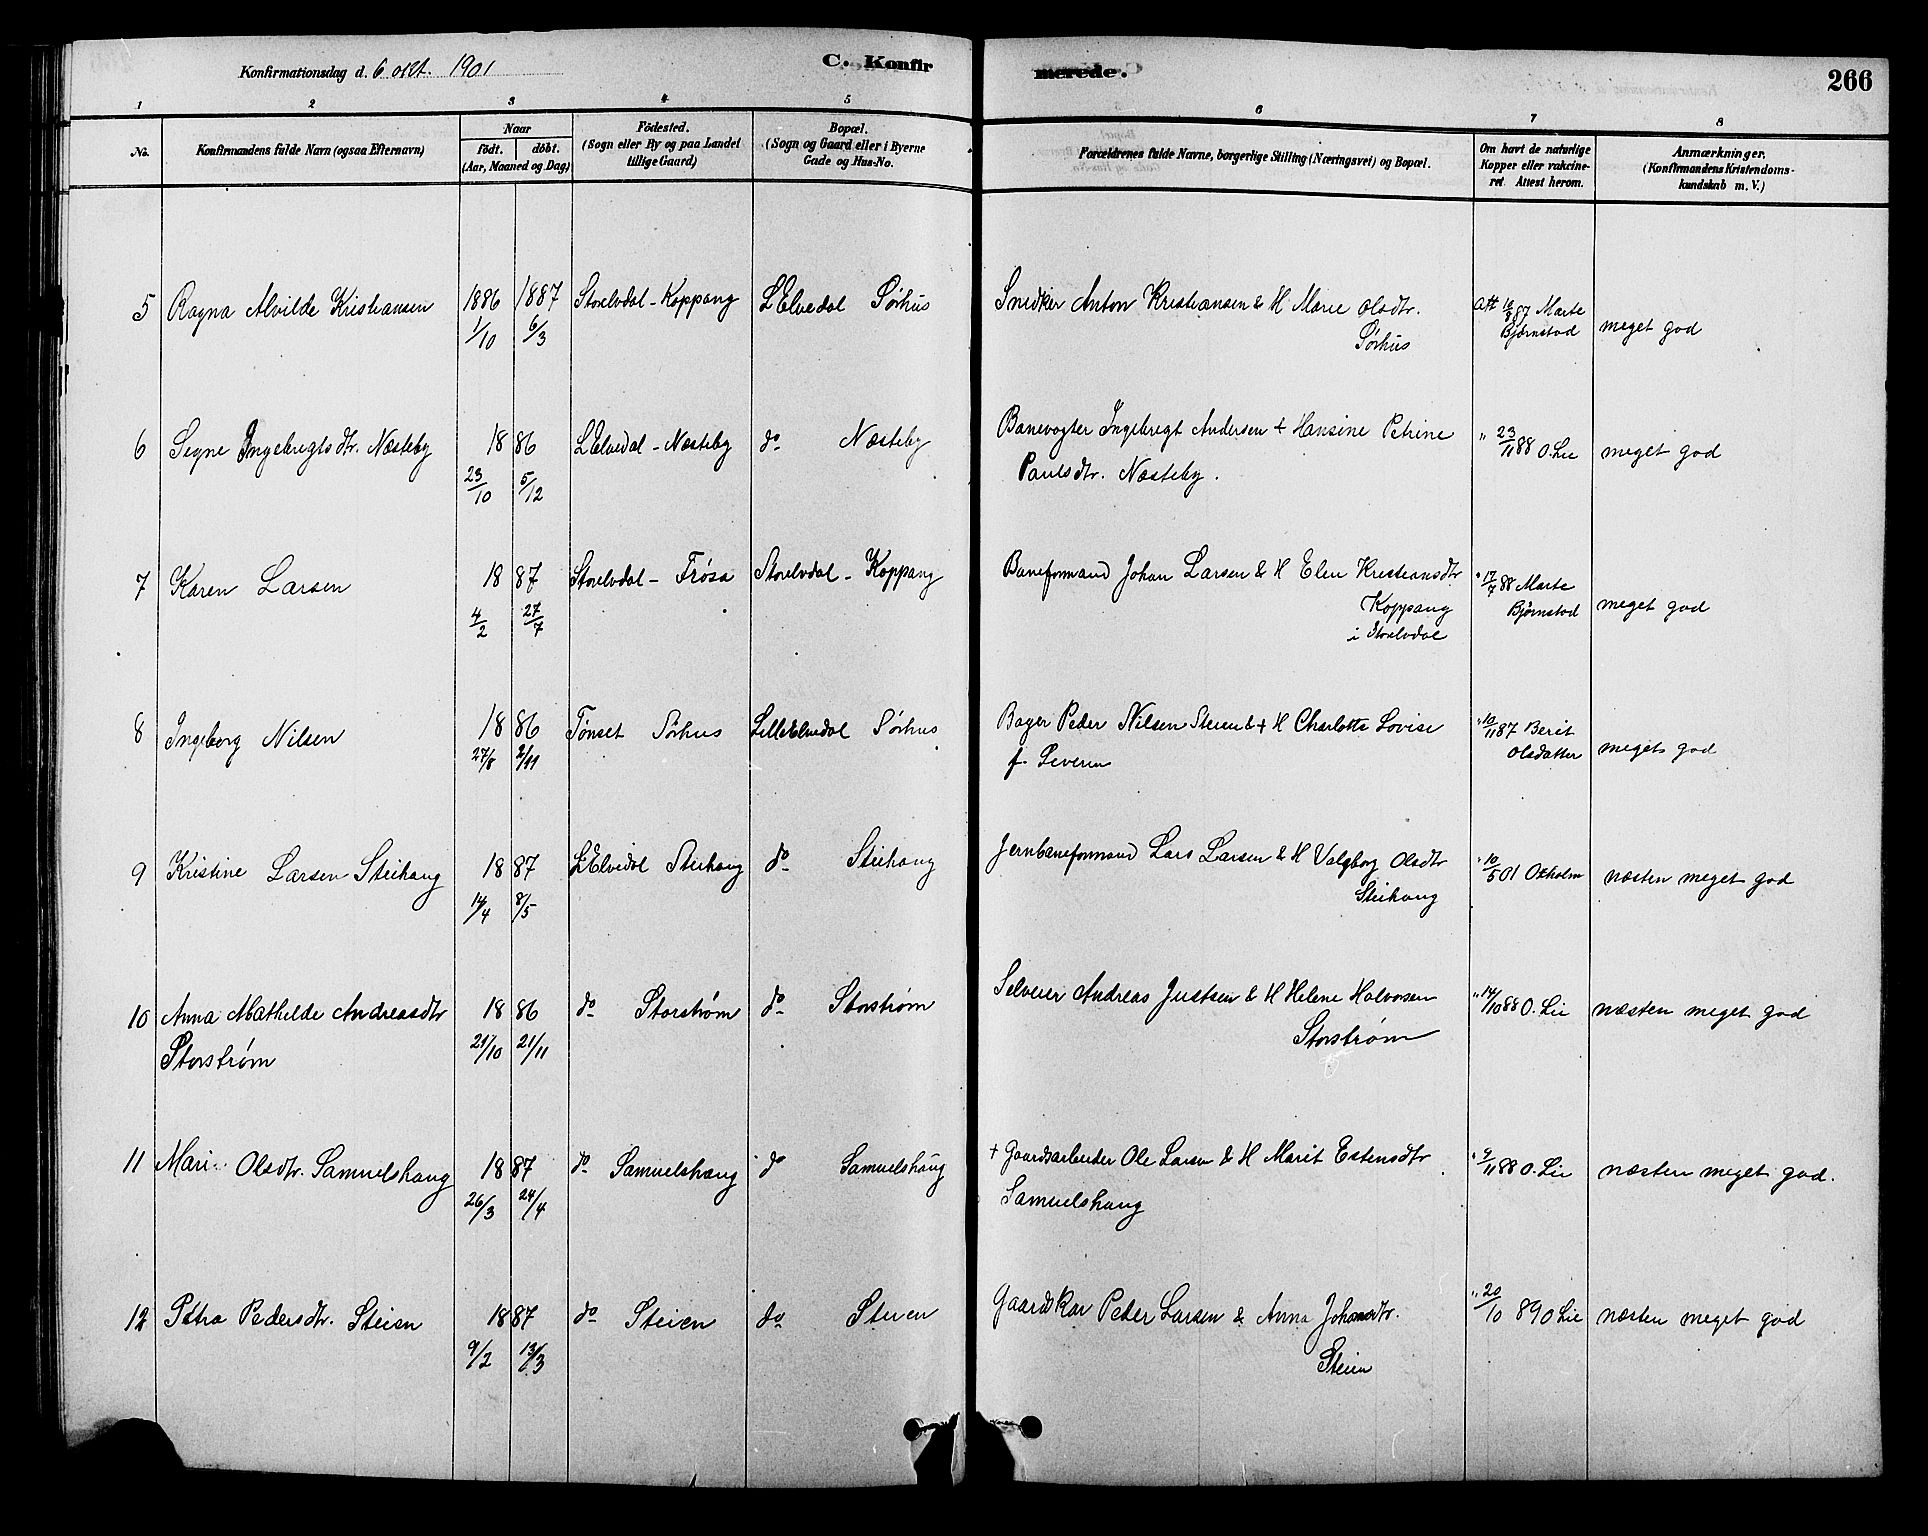 Konfirmationsdag d. 6 okt. 1901
C. Konfirmerede.
266
1 2 3 4 5 6 7 8
No.
Konfirmandens fulde Navn (ogsaa Efternavn)
Naar
födt. döbt.
(Aar, Maaned og Dag)
Födested.
(Sogn eller By og paa Landet
tillige Gaard)
Bopæl.
(Sogn og Gaard eller i Byerne
Gade og Hus-No.
Forældrenes fulde Navne, borgerlige Stilling (Næringsvei) og Bopæl.
Om havt de naturlige
Kopper eller vakcine-
ret. Attest herom.
Anmærkninger.
(Konfirmandens Kristendoms-
kundskab m. V.)
5 Ragna Alvilde Kristiansen 1886 1887 Storelvdal - Koppang L Elvedal Sørhus Snedker Anton Kristiansen & H Marie Olsdtr. Att 12/8 87 Marte
1/10 6/3 Sørhus Bjørnstad meget god
6 Signe Ingebregtsdtr. Næsteby 18 86 L Elvedal - Næsteby do Næsteby Banevogter Ingebregt Andersen & Hansine Petrine " 23/11 88 O. Lie meget god
23/10 5/12 Paulsdtr. Næsteby.
7 Karen Larsen 18 87 Storelvdal - Frøsa Storelvdal - Koppang Baneformand Johan Larsen & H Elen Kristiansdtr " 17/7 88 Marte
4/2 27/7 Koppang Bjørnstad meget god
i Storelvdal
8 Ingeborg Nilsen 18 86 Tønset Sørhus Lille Elvedal Sørhus Bager Peder Nilsen Steien & + H Charlotte Lovise " 10/11 87 Berit
27/8 2/11 f. Severin Olsdatter meget god
9 Kristine Larsen Steihaug 18 87 L Elvedal Steihaug do Steihaug Jernbaneformand Lars Larsen & H Valgborg Olsdtr " 10/5 01 Oxholm næsten meget god
14/4 8/5 Steihaug
10 Anna Mathilde Andreasdtr 18 86 do Storstrøm do Storstrøm Selveier Andreas Justsen & H Helene Halvorsen " 14/10 88 O. Lie næsten meget god
Storstrøm 21/10 21/11 Storstrøm
11 Mari Olsdtr. Samuelshaug 18 87 do Samuelshaug do Samuelshaug + Gaardsarbeider Ole Larsen & H Marit Estensdtr " 9/11 88 O. Lie næsten meget god.
26/3 24/4 Samuelshaug
12 Petra Pedersdtr. Steien 18 87 do Steien do Steien Gaardskar Peder Larsen & Anna Johansdtr. " 20/10 89 O Lie næsten meget god
9/2 13/3 Steien